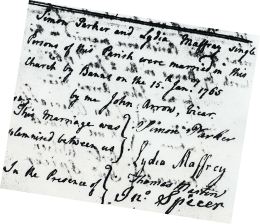 Simon Parker and Lydia Maffrey single
Persons of this Parish were married in this
Church by Banns on the 15. Jan: 1765
by me John Arrow, Vicar.
This Marriage was } Simon Parker
solemnised between us } Lydia Maffrey
In the Presence of } Thomas
Jno. Speer